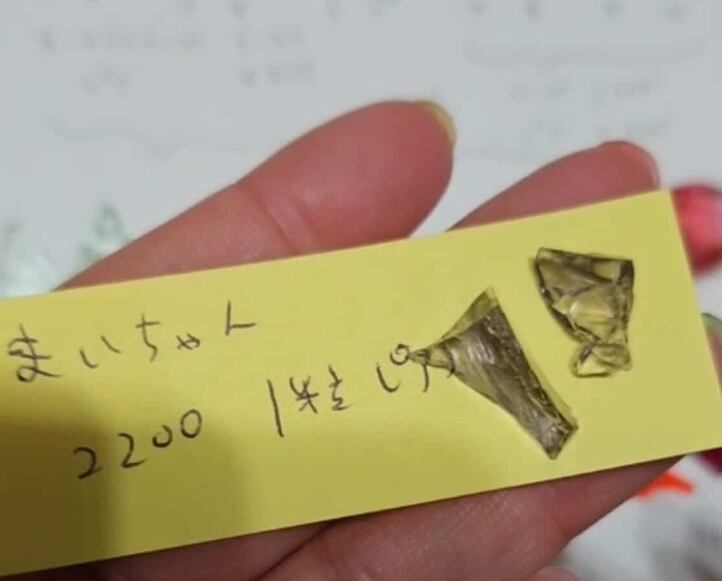 まいちゃん
2200 1粒